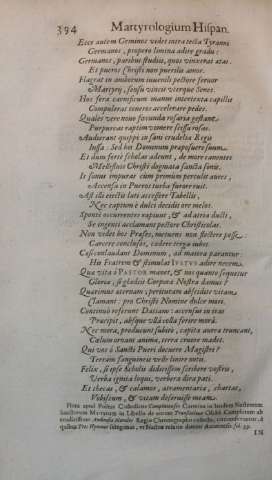 394 Martyrologium Hispan.
Ecce autem Geminos videt intra tecta Tyranni
Germanos, propero limina adire gradu:
Germanos, paribus studiis, quos vinceret ætas.
Et pueros Christi non puerilis amor.
Flagrat in amborum iuvenili pectore fervor
Martyrij, sensu vincit uterque Senes.
Hos fera carnificum manus interrita capillis
Compulerat teneros accelerare pedes.
Quales vere novo fœcunda rosaria gestant
Purpureas raptim vomere scissa rosas.
Audierant quippe in sani crudelia Regis
Iussa: Sed hos Dominum præposuere suum.
Et dum forte scholas adeunt, de more
Christi dogmata sancta sinit.
Is simul impurus cum premium percutit aures,
Accensa in Pueros turba furore ruit.
Ast illi erectis luti accessere Tabellis,
Nec captum è dulci decidit ore melos.
Sponte occurrentes rapiunt, & ad atria dulli,
Se ingenti acclamant pectore Christicolas.
Non videt hos Præses, metuens non flectere posse
Carcere conclusos, cadere terga iubet.
Cæsi conlaudant Dominum, ad mutua parantur:
Hic Fratrem & stimulat IVSTVS adire necem.
Qua vita ô PASTOR manet, & nos quanto sequetur
Gloria, si gladiis Corpora Nostra domus?
Quatimus æternam, perituram abscidite vitam
Clamant: pro Christi Nomine dulce mori.
Continuò referunt Datiano: accensus in iras
Præcipit, absque ulla colla ferire morâ.
Nec mora, producunt subitò, capita aurea truncant,
Calum ornant anima, terra cruore madet.
Qui vos ô Sancti Pueri docuere Magistri?
Terram sanguineo velle linire
Felix, si ipse Scholis didicissem scribere vestris,
Verba ignita loqui, verbera dira pati.
Et thecas, & calamos, atramentaria, chartas,
Vobiscum, & vitam deseruisse meam.
Hæc apud Poetas Collectione Complutensis Carmina in laudem Nostrorum
Sanctorum Martyrum in Libello de eorum Translatione Oscâ Complutum ab
eruditissimo Ambrosio Morales Regio Chronographo collecto,
quibus Tres Hymnos subiungimus, ut huiusce relatio donent documentis: fol. 59.
IN